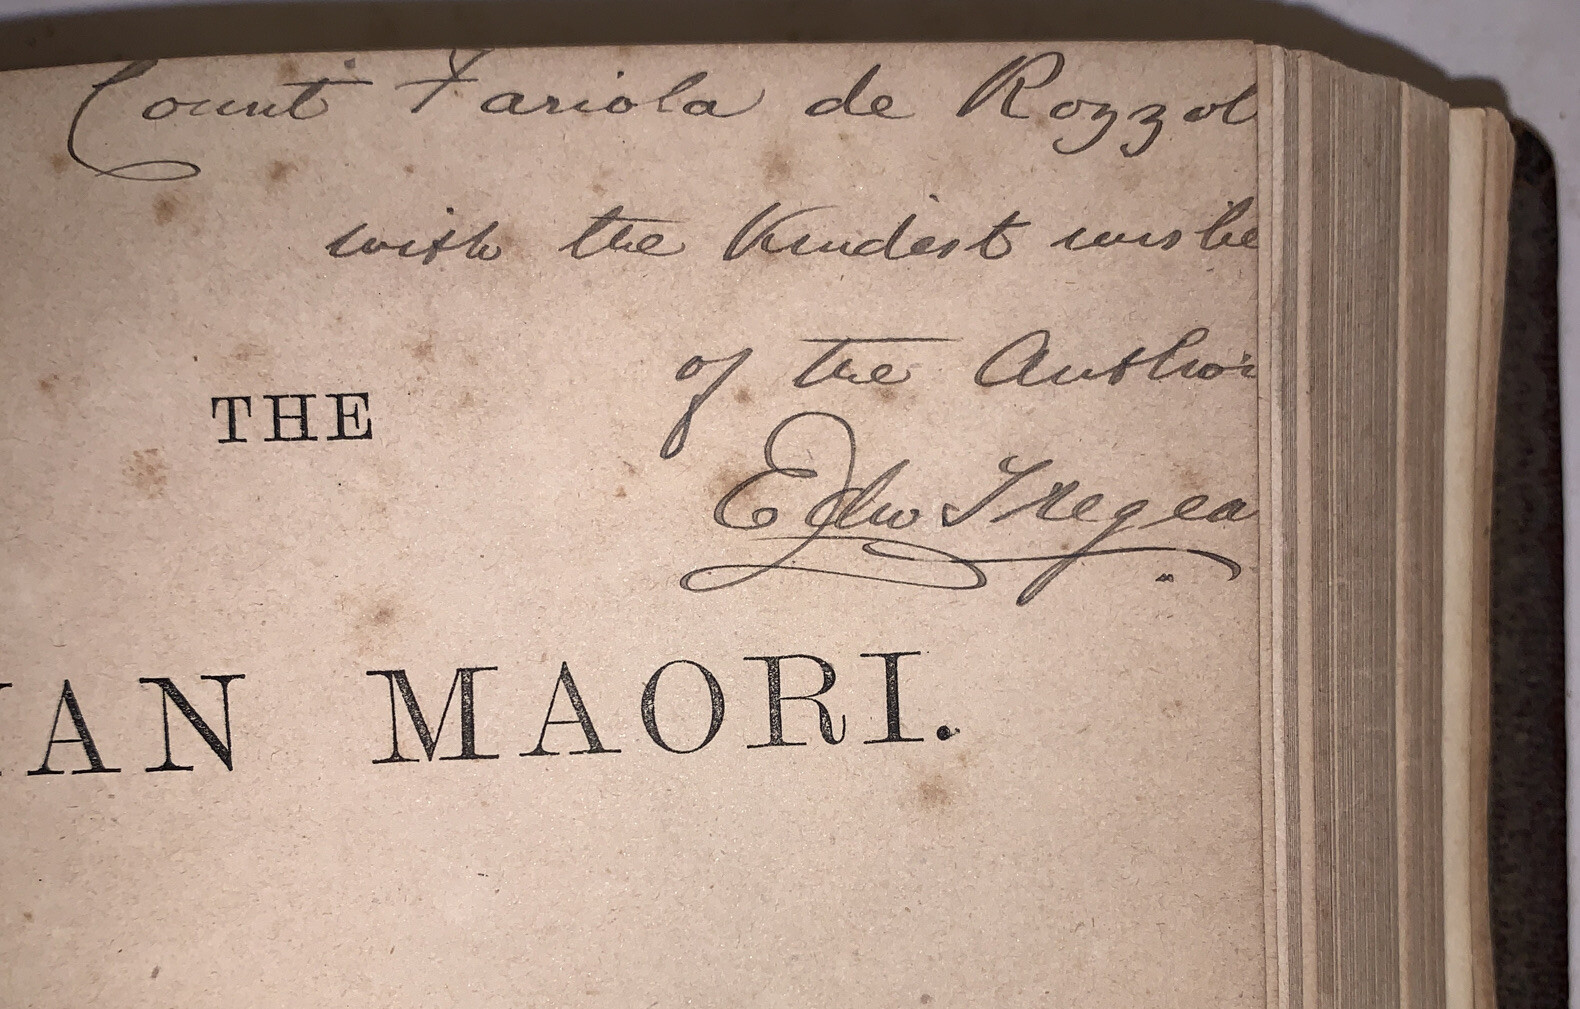 Count Fariola de Rozzol
with the Kindest wishe
of the Author
THE
Edw Tregea
YAN MAORI.